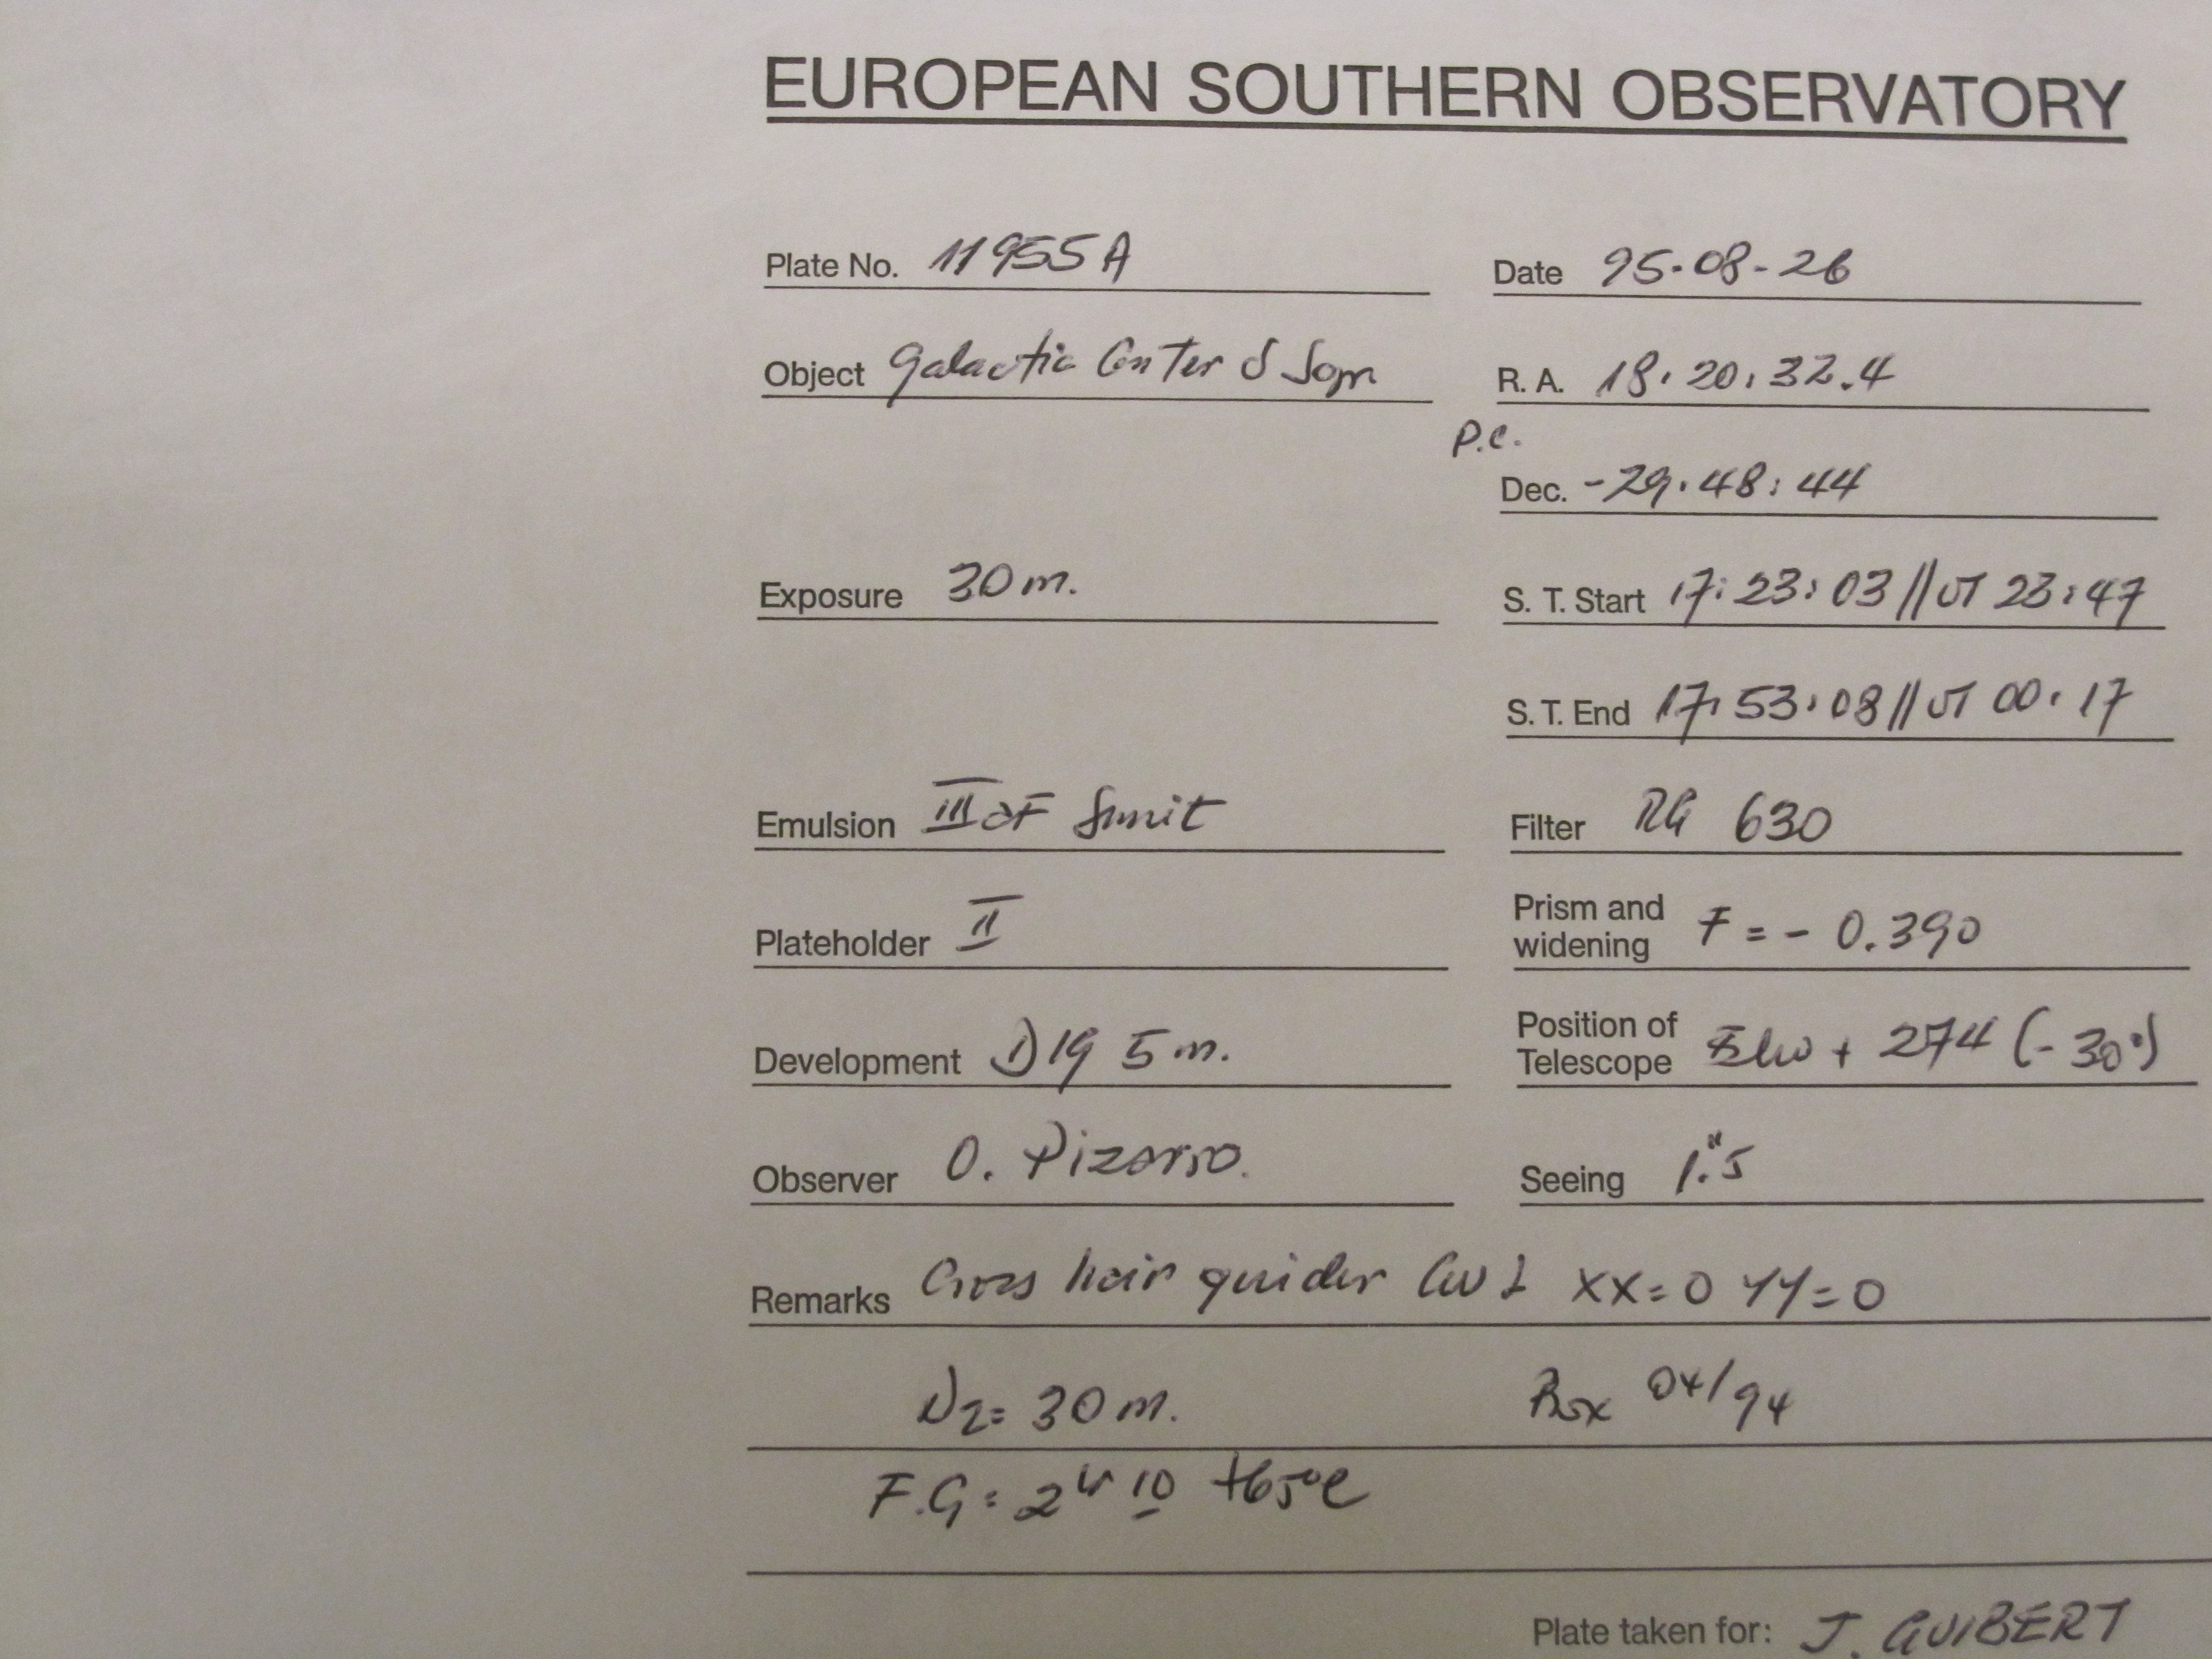 EUROPEAN SOUTHERN OBSERVATORY
Plate No. 11955A Date 95-08-26
Object Galactic Center δ R. A. 18:20:32.4
P.C.
Dec. -29:48:44
Exposure 30 m. S. T. Start 17:23:03 // UT 23:47
S. T. End 17:53:08 // UT 00:17
Emulsion III aF Filter RG 630
Plateholder II Prism and widening F = - 0.390
Development D19 5 m. Position of Telescope + 274 (-30°)
Observer O. Pizarro. Seeing 1."5
Remarks Cross hair guider XX=0 YY=0
N2= 30 m. Box 04/94
F.G= +65°C
Plate taken for: J. GUIBERT